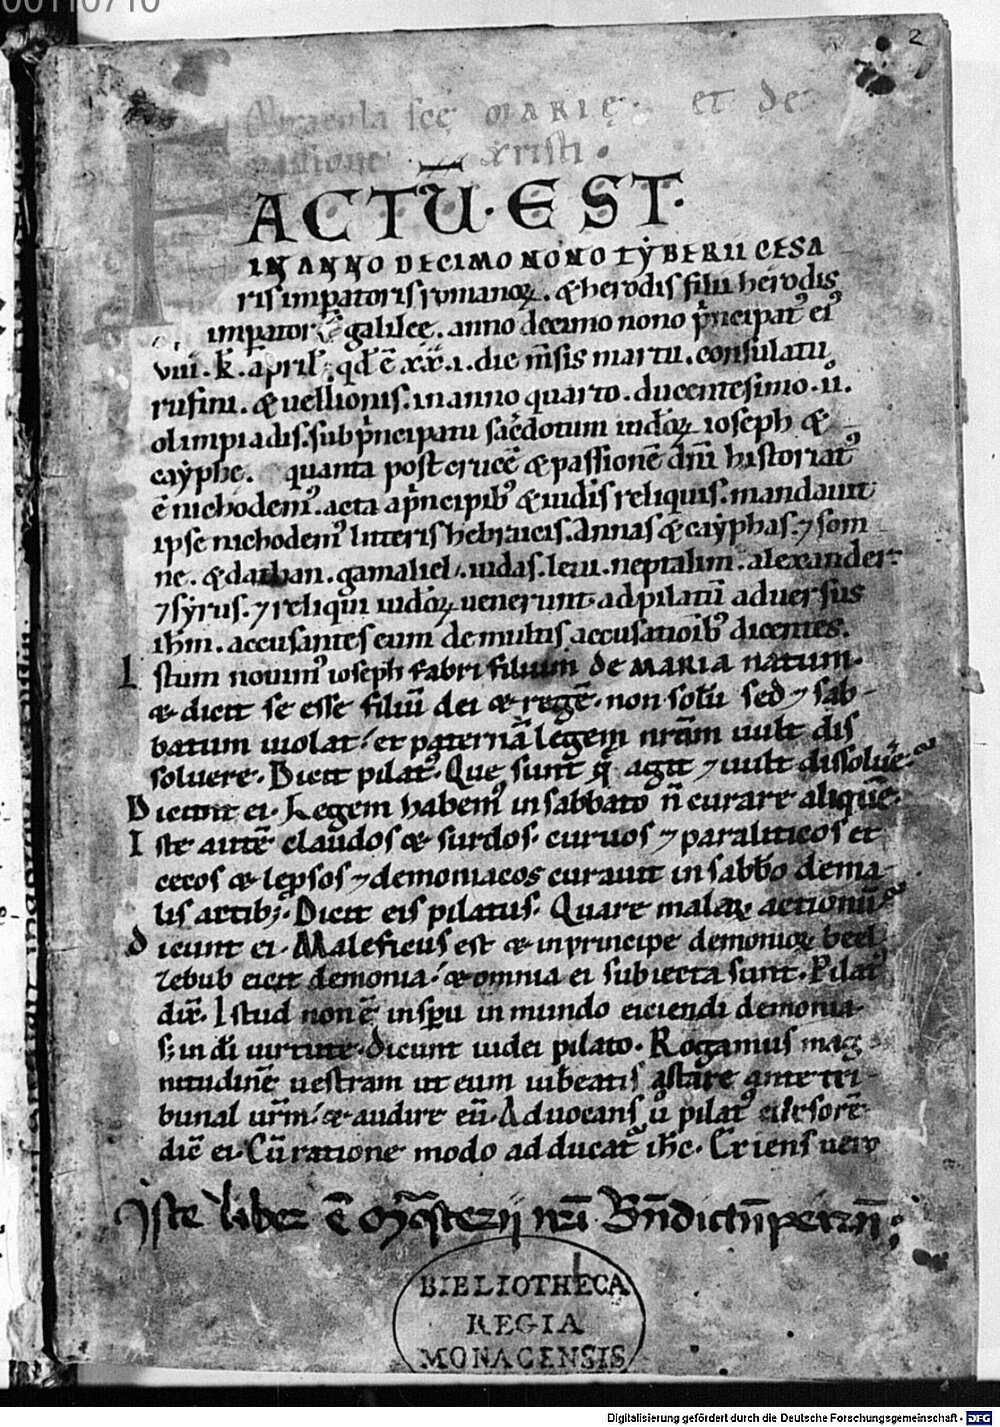 00110710
2
Miracula scē MARIĘ. et de
passione xristi.
FACTŪ·EST·
IN ANNO DECIMO NONO TYBERII CESA
ris imꝑatoris romanoꝝ. & herodis filii herodis
imꝑatoris galileę. anno decimo nono p̄ncipat᷒ ei᷒
viii. k̄. april᷒. qd̄ ē xx.i. die m̄sis martii. consulatu
rufini. & uellionis. in anno quarto. ducentesimo .ii.
olimpiadis. sub p̄ncipatu sac̄dotum iud̄oꝝ ioseph &
cayphe. quanta post crucē & passionē dn̄i historiat᷒
ē nichodem᷒. acta a p̄ncipib᷒ & iud̄is reliquis. mandauit
ipse nichodem᷒ litteris hebraicis. Annas & cayphas. ⁊ som
ne. & dathan. gamaliel. iudas. leui. neptalim. alexander.
⁊ syrus. ⁊ reliqui iud̄oꝝ uenerunt ad pilatū aduersus
ih̄m. accusantes eum de multis accusatioīb᷒ dicentes.
Istum nouim᷒ ioseph fabri filium de MARIA natum.
& dicit se esse filiū dei & regē. non solū sed ⁊ sab-
batum uiolat. et paternā legem nr̄am uult dis
soluere. Dicit pilat᷒. Que sunt q̄ agit ⁊ uult dissolue᷒.
Dicunt ei. Legem habem᷒ in sabbato n̄ curare aliquē.
Iste autē claudos & surdos. curuos ⁊ paraliticos et
cecos & leprosos ⁊ demoniacos curauit in sabb̄o de ma-
lis artib;. Dicit eis pilatus. Quare malaꝝ actionū
Dicunt ei. Maleficus est & in principe demonioꝝ beel
zebub eicit demonia. & omnia ei subiecta sunt. Pilat᷒
dix̄. Istud non ē in sp̄u inmundo eiciendi demonia.
s; in dī uirtute. Dicunt iudei pilato. Rogamus mag
nitudinē uestram ut eum iubeatis astare ante tri-
bunal ur̄m. & audire eū. Aduocans ū pilat᷒ cursorē
dic̄ ei. Cū ratione modo adducat᷒ ih̄c. Exiens uero
Iste liber ē Monasterij nr̄i Bn̄dictn̄pewrn̄:
BIBLIOTHECA
REGIA
MONACENSIS
Digitalisierung gefördert durch die Deutsche Forschungsgemeinschaft - DFG